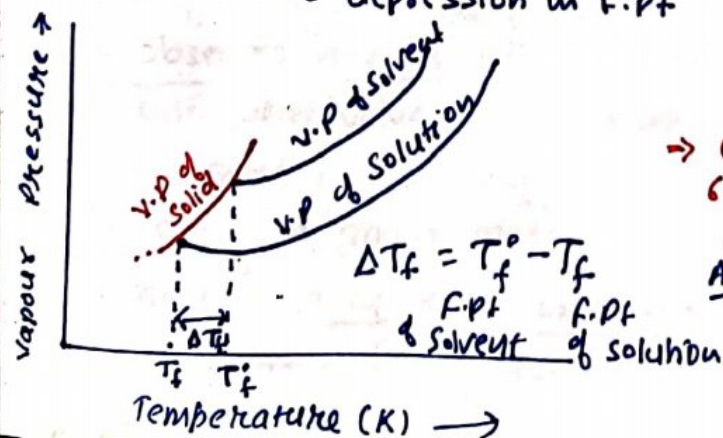 depression in F.pt
Vapour Pressure →
V.P of Solvent
V.P of Solid
V.P of Solution
ΔTf = Tf° - Tf
F.pt of Solvent f.pt of solution
ΔTf
Tf Tf°
Temperature (K) →